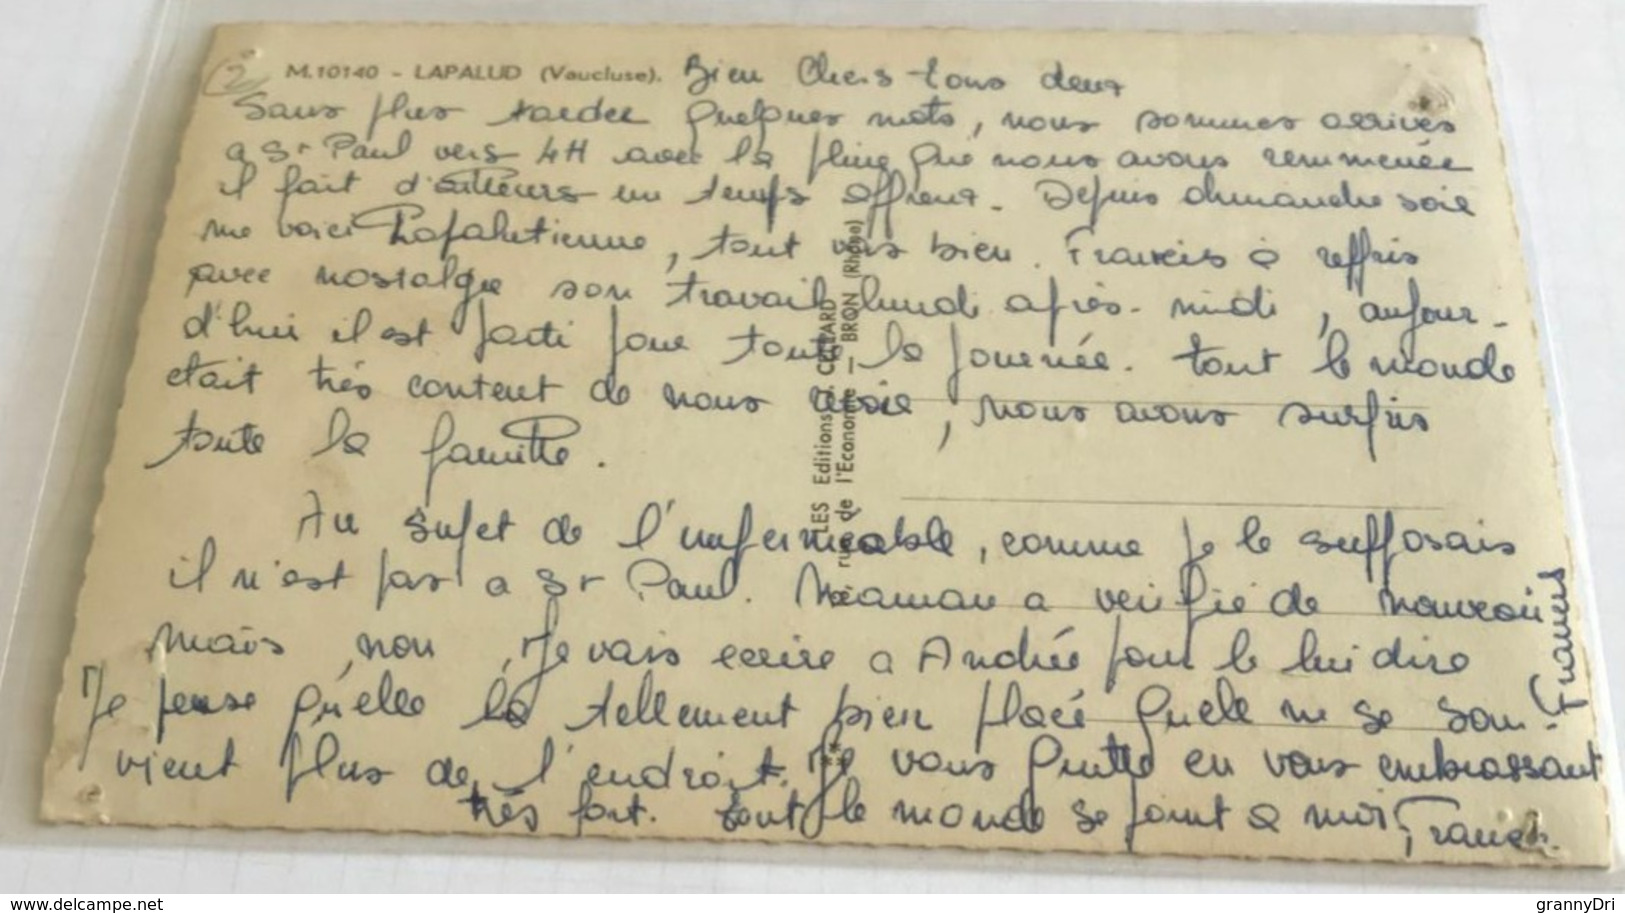 M.10140 - LAPALUD (Vaucluse). Bien Chers tous deux
Sans plus tarder quelques mots, nous sommes arrivés
a St Paul vers 4H avec la pluie que nous avons remmenée
il fait d'ailleurs un temps affreux. Depuis dimanche soir
me voici Lapalutienne, tout va bien. Francis à repris
avec nostalgie son travail lundi après-midi, aujour-
d'hui il est parti pour toute la journée. tout le monde
etait très content de nous revoir, nous avons surpris
toute la famille.
Au sujet de l'imperméable, comme je le supposais
il n'est pas a St Paul. Maman a verifié de nouveau
mais non, Je vais ecrire a Andrée pour le lui dire
Je pense qu'elle la tellement bien placé quelle ne se sou-
vient plus de l'endroit. Je vous quitte en vous embrassant
très fort. tout le monde se joint a moi,
LES Editions CELLARD
rue de l'Economie — BRON (Rhône)
www.delcampe.net
grannyDri